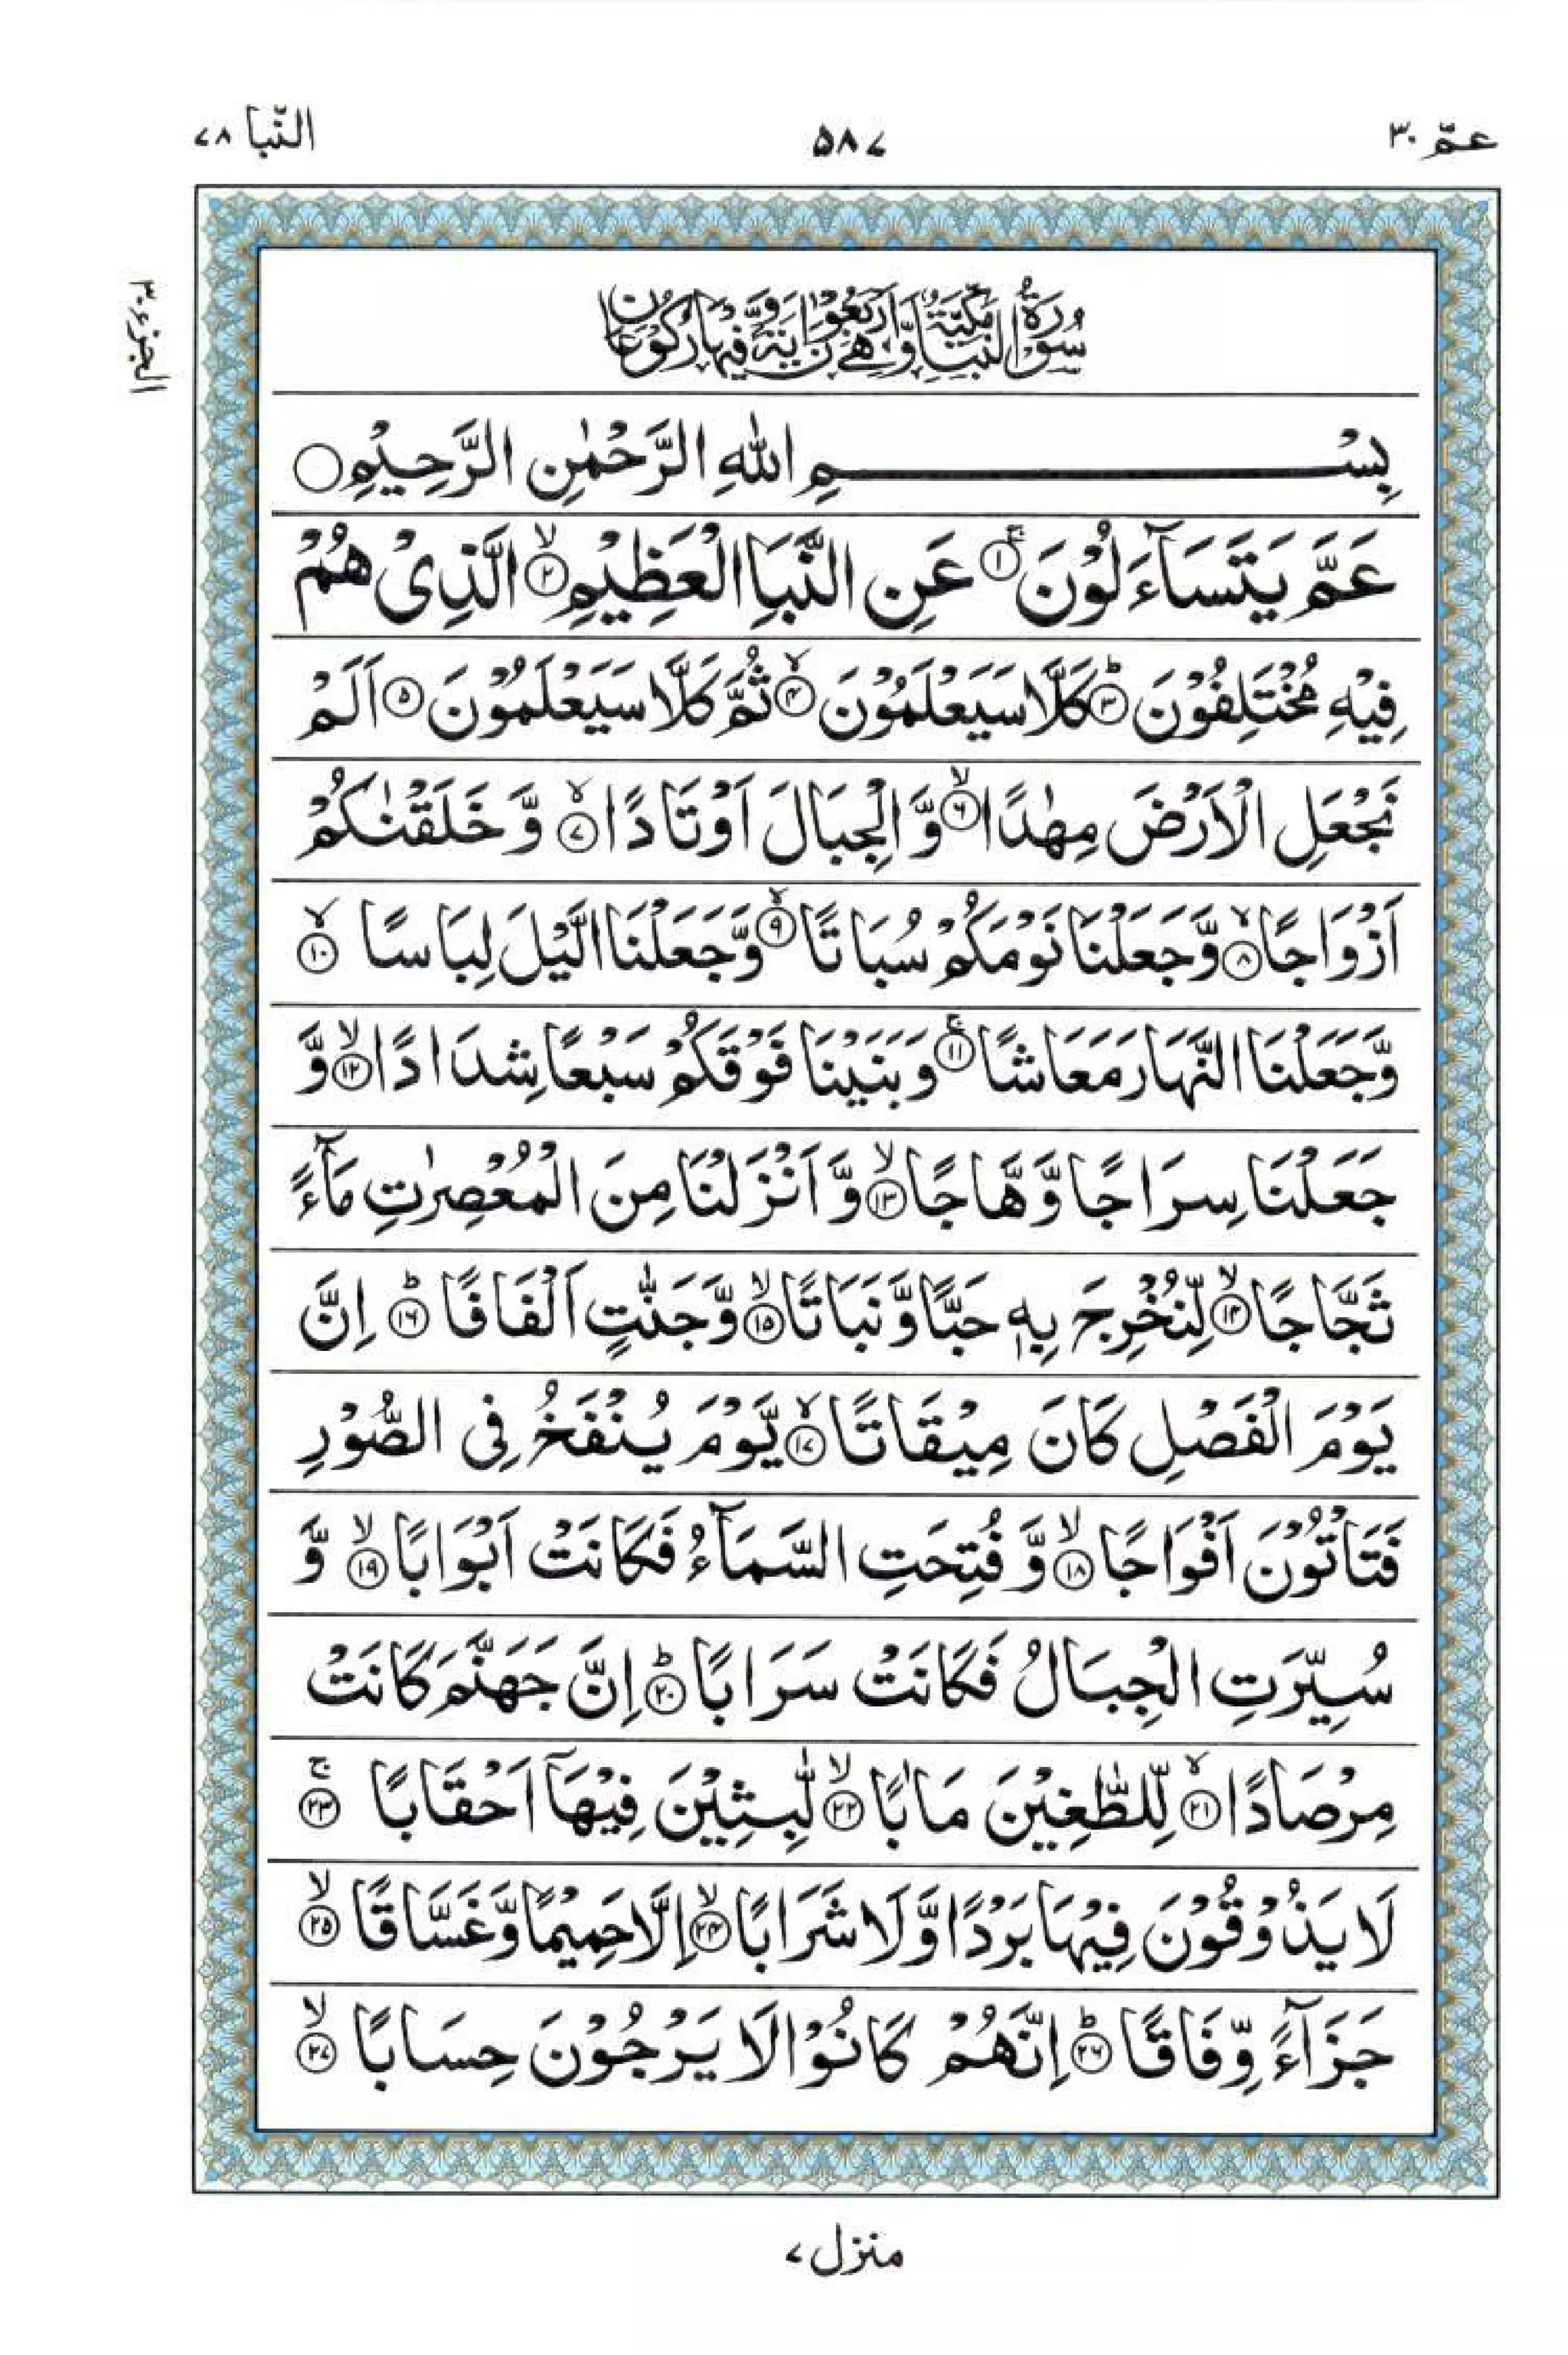 عمّ ٣٠
٥٨٧
النّبا ٧٨
الجزء ٣٠
سُوْرَةُ النَّبَاِ مَكِّيَّةٌ وَّهِیَ اَرْبَعُوْنَ اٰيَةً وَّفِيْهَا رُكُوْعَانِ
بِسْمِ اللّٰهِ الرَّحْمٰنِ الرَّحِيْمِ ○
عَمَّ يَتَسَآءَلُوْنَ ۚ‏﴿۱﴾ عَنِ النَّبَاِ الْعَظِيْمِ ۙ‏﴿۲﴾ الَّذِیْ هُمْ
فِيْهِ مُخْتَلِفُوْنَ ؕ‏﴿۳﴾ كَلَّا سَيَعْلَمُوْنَ ۙ‏﴿۴﴾ ثُمَّ كَلَّا سَيَعْلَمُوْنَ ﴿۵﴾ اَلَمْ
نَجْعَلِ الْاَرْضَ مِهٰدًا ۙ‏﴿۶﴾ وَّالْجِبَالَ اَوْتَادًا ۙ‏﴿۷﴾ وَّخَلَقْنٰكُمْ
اَزْوَاجًا ۙ‏﴿۸﴾ وَّجَعَلْنَا نَوْمَكُمْ سُبَاتًا ۙ‏﴿۹﴾ وَّجَعَلْنَا الَّيْلَ لِبَاسًا ۙ‏﴿۱۰﴾
وَّجَعَلْنَا النَّهَارَ مَعَاشًا ۚ‏﴿۱۱﴾ وَبَنَيْنَا فَوْقَكُمْ سَبْعًا شِدَادًا ۙ‏﴿۱۲﴾ وَّ
جَعَلْنَا سِرَاجًا وَّهَّاجًا ۙ‏﴿۱۳﴾ وَّاَنْزَلْنَا مِنَ الْمُعْصِرٰتِ مَآءً
ثَجَّاجًا ۙ‏﴿۱۴﴾ لِّنُخْرِجَ بِهٖ حَبًّا وَّنَبَاتًا ۙ‏﴿۱۵﴾ وَّجَنّٰتٍ اَلْفَافًا ؕ‏﴿۱۶﴾ اِنَّ
يَوْمَ الْفَصْلِ كَانَ مِيْقَاتًا ۙ‏﴿۱۷﴾ يَّوْمَ يُنْفَخُ فِی الصُّوْرِ
فَتَاْتُوْنَ اَفْوَاجًا ۙ‏﴿۱۸﴾ وَّفُتِحَتِ السَّمَآءُ فَكَانَتْ اَبْوَابًا ۙ‏﴿۱۹﴾ وَّ
سُيِّرَتِ الْجِبَالُ فَكَانَتْ سَرَابًا ؕ‏﴿۲۰﴾ اِنَّ جَهَنَّمَ كَانَتْ
مِرْصَادًا ۙ‏﴿۲۱﴾ لِّلطّٰغِيْنَ مَاٰبًا ۙ‏﴿۲۲﴾ لّٰبِثِيْنَ فِيْهَآ اَحْقَابًا ۚ‏﴿۲۳﴾
لَا يَذُوْقُوْنَ فِيْهَا بَرْدًا وَّلَا شَرَابًا ۙ‏﴿۲۴﴾ اِلَّا حَمِيْمًا وَّغَسَّاقًا ۙ‏﴿۲۵﴾
جَزَآءً وِّفَاقًا ؕ‏﴿۲۶﴾ اِنَّهُمْ كَانُوْا لَا يَرْجُوْنَ حِسَابًا ۙ‏﴿۲۷﴾
منزل ٧